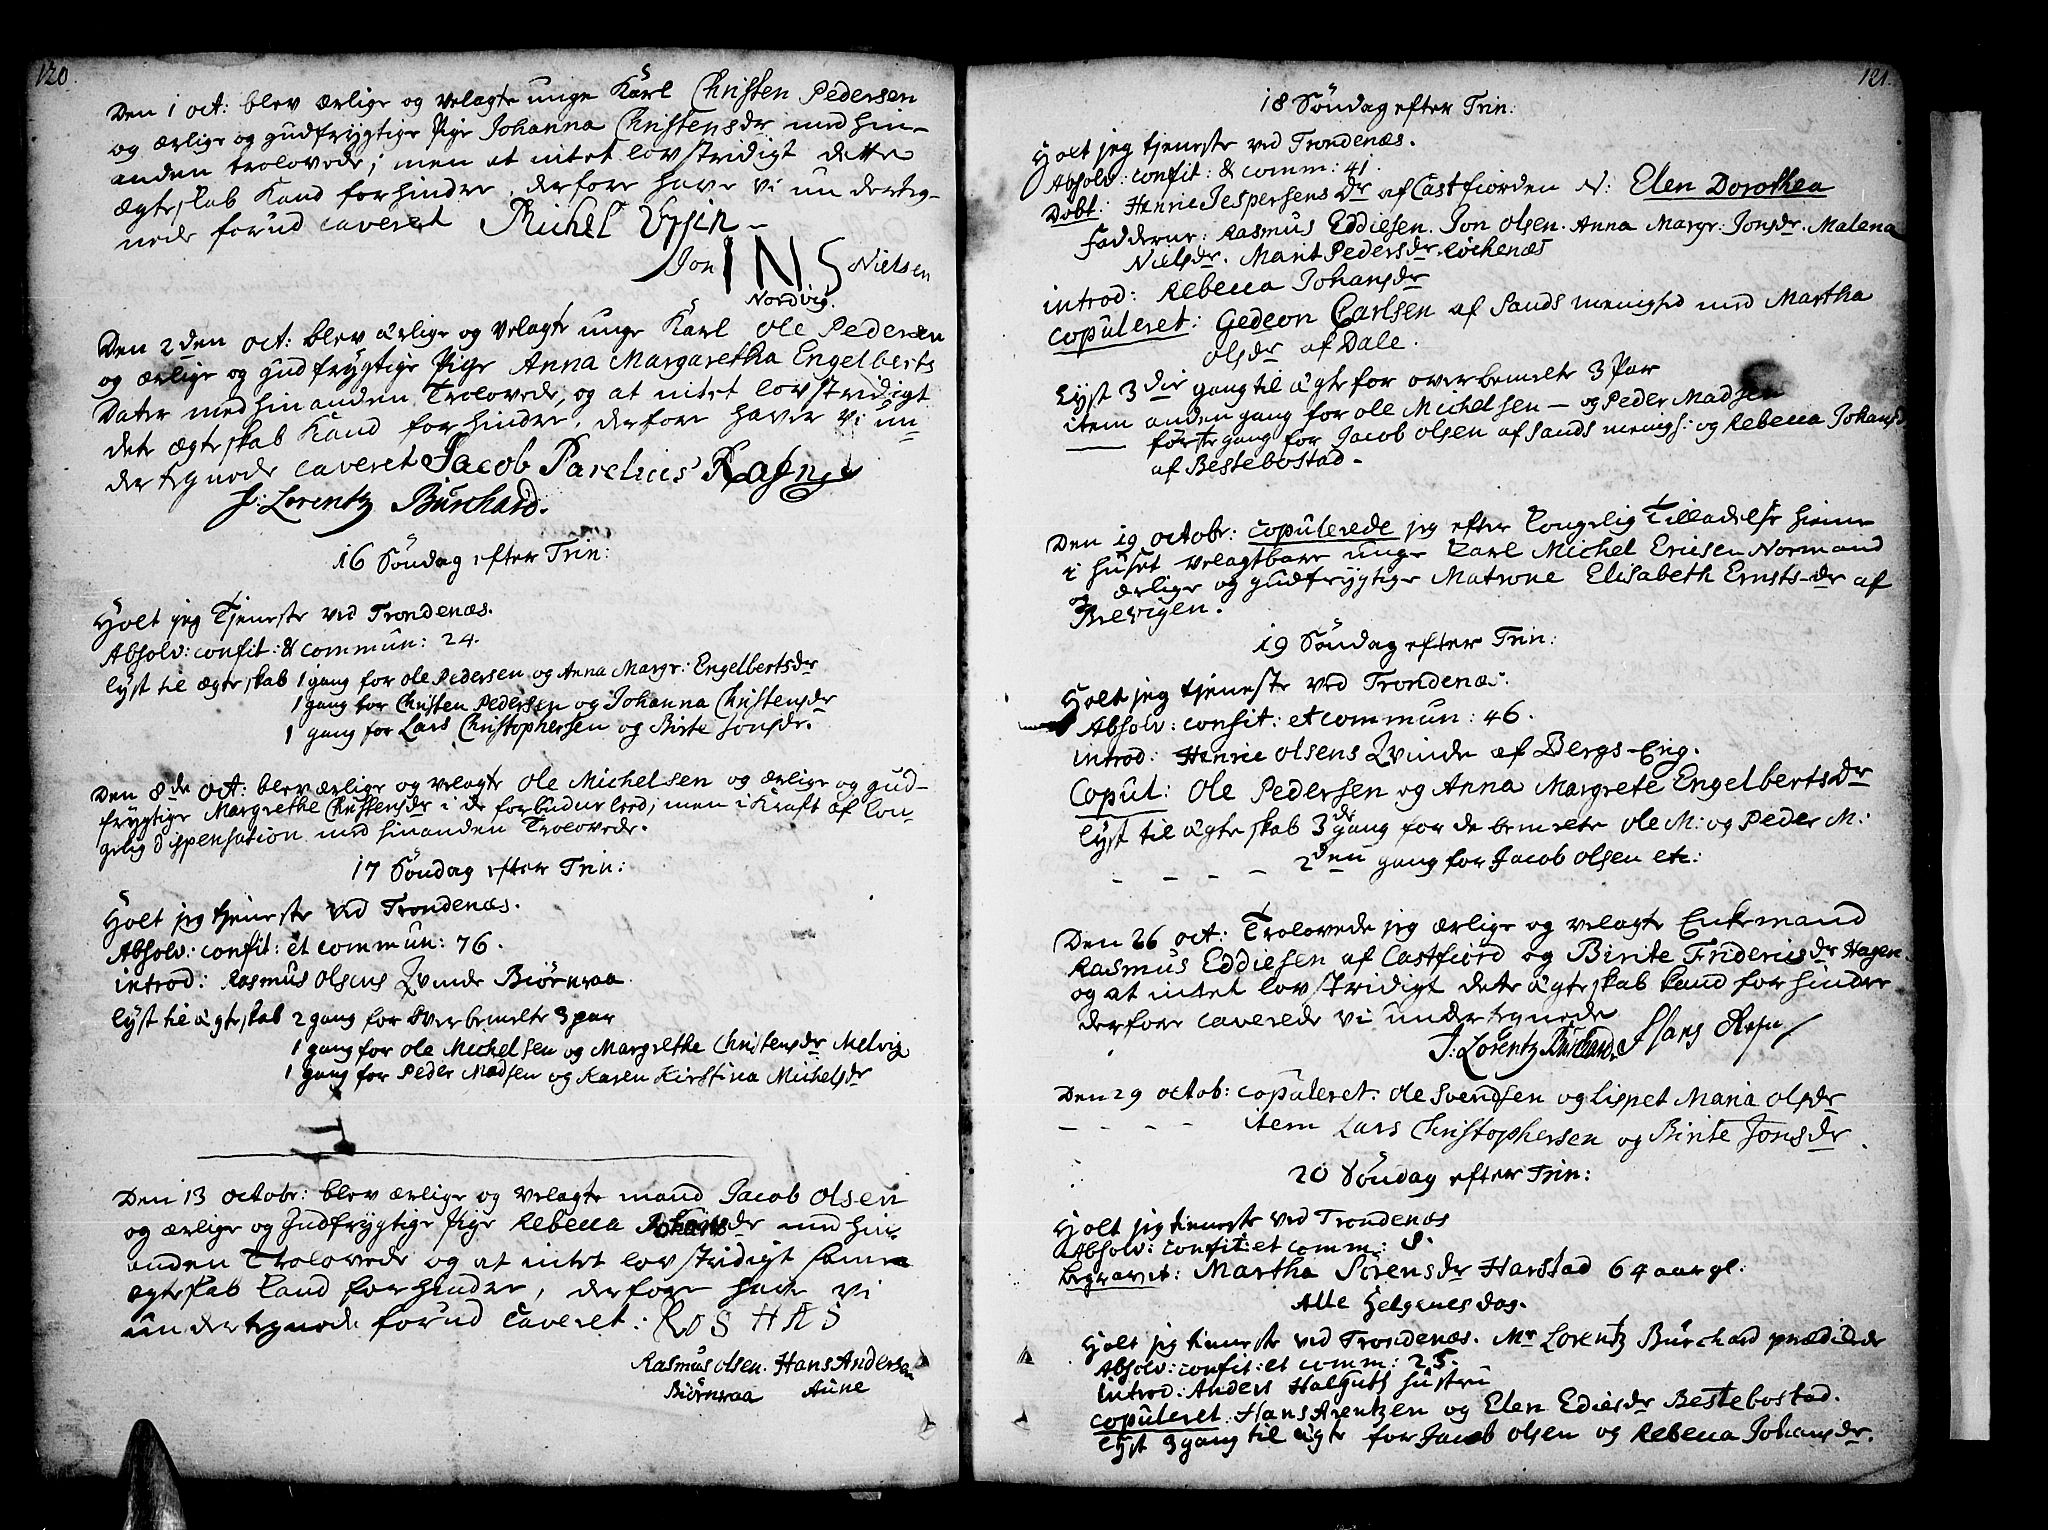 120.
Den 1 oct: blev ærlige og velagte unge Karl Christen Pedersen
og ærlige og gudfrygtige Pige Johanna Christensdr med hin-
anden trolovede; men at intet lovstridigt dette
ægteskab Kand forhindre, derfore have vi underteg-
nede forud caveret Michel
Jon INS Nielsen
Nordvig.
Den 2den oct: blev ærlige og velagte unge Karl Ole Pedersen
og ærlige og gudfrygtige Pige Anna Margaretha Engelberts
Dater med hinanden Trolovede, og at intet lovstridigt
det ægteskab Kand forhindre, derfore haver vi un-
dertegnede caveret Jacob Parelius
J: Lorentz Burchard.
16 Søndag efter Trin:
Holt jeg Tjeneste ved Trondenæs.
Absolv: confit: & commun: 24.
lyst til ægteskab 1 gang for Ole Pedersen og Anna Margr: Engelbertsdr
1 gang for Christen Pedersen og Johanna Christensdr
1 gang for Lars Christophersen og Birte Jonsdr.
Den 8de oct: blev ærlige og velagte Ole Michelsen og ærlige og gud-
frygtige Margrethe Christensdr i de forbudne leed; men i Kraft af Kon-
gelig Dispensation med hinanden Trolovede.
17 Søndag efter Trin:
Holt jeg tjeneste ved Trondenæs.
Absolv: confit: et commun: 76.
introd: Rasmus Olsens Qvinde Biørnraa
lyst til ægteskab 2 gang for overbemelte 3 par
1 gang for Ole Michelsen og Margrethe Christensdr Melvig
1 gang for Peder Madsen og Karen Kirstina Michelsdr
Den 13 octobr: blev ærlige og velagte mand Jacob Olsen
og ærlige og Gudfrygtige Pige Rebecca Johansdr med hin-
anden Trolovede og at intet lovstridigt samme
ægteskab kand forhindre, derfore have vi
undertegnede forud caveret: ROS HAS
Rasmus Olsen. Hans Andersen
Biørnraa Aune
121.
18 Søndag efter Trin:
Holt jeg tjeneste ved Trondenæs.
Absolv: confit: & comm: 41.
Døbt: Henric Jespersens Dr af Castfiorden N: Elen Dorothea
Fadderne: Rasmus Eddiesen. Jon Olsen. Anna Margr: Jonsdr. Malena
Nielsdr. Marit Pedersdr Røchenæs
introd: Rebecca Johansdr
copuleret: Gedeon Carlsen af Sands menighed med Martha
Olsdr af Dale.
Lyst 3die gang til ægte for overbemelte 3 Par
item anden gang for Ole Michelsen - og Peder Madsen
første gang for Jacob Olsen af Sands menigh: og Rebecca Johansd
af Bestebostad.
Den 19 octobr: copulerede jeg efter Kongelig Tilladelse hiemme
i huset velagtbare unge Karl Michel Ericsen Normand
og ærlige og gudfrygtige Matrone Elisabeth Ernstsdr af
Brevigen.
19 Søndag efter Trin:
Holt jeg tjeneste ved Trondenæs.
Absolv: confit: et commun: 46.
introd: Henric Olsens Qvinde af Bergs-Eng.
Copul: Ole Pedersen og Anna Margrete Engelbertsdr
lyst til ægteskab 3de gang for de bemelte Ole M: og Peder M:
- - - - 2den gang for Jacob Olsen etc:
Den 26 oct: Trolovede jeg ærlige og velagte Enkemand
Rasmus Eddiesen af Castfiord og Birite Fridericsdr Hagen.
og at intet lovstridigt dette ægteskab kand forhindre
derfore caverede vi undertegnede
J: Lorentz Burchard. Hans
Den 29 octob: copuleret: Ole Svendsen og Lispet Maria Olsdr
- - - - item Lars Christophersen og Birite Jonsdr.
20 Søndag efter Trin:
Holt jeg tieneste ved Trondenæs
Absolv: confit: et comm: 8.
begravet: Martha Sørensdr Harstad 64 aar gl:
Alle Helgenes dag.
Holt jeg tieneste ved Trondenæs. Mr Lorentz Burchard prædikede
Absolv: confit: et comm: 25.
introd: Anders Halguts hustru
copuleret: Hans Arentzen og Elen Ediesdr Bestebostad.
lyst 3 gang til ægte for Jacob Olsen og Rebecca Johansdr.